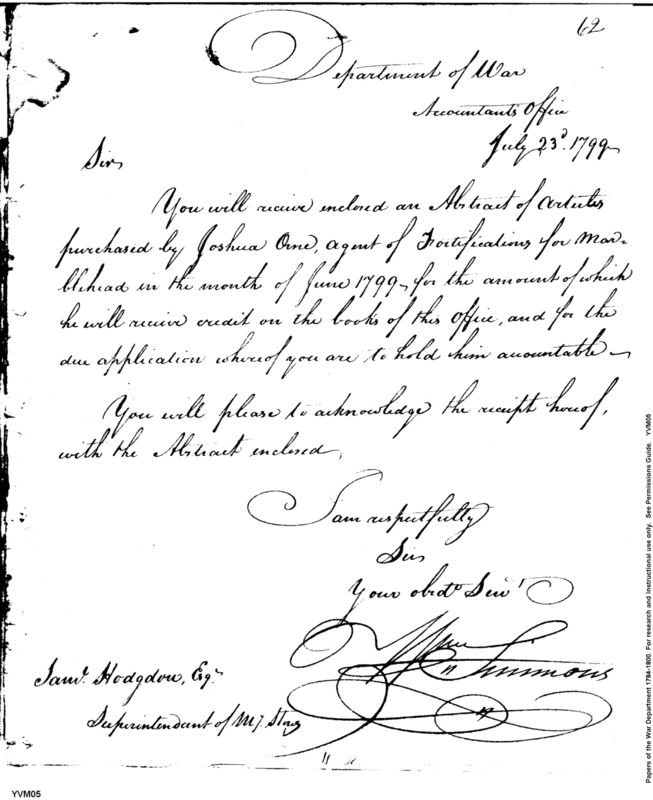 62
Department of War
Accountants Office
July 23d. 1799
Sir
You will receive enclosed an Abstract of Articles
purchased by Joshua Orne, agent of Fortifications for Mar-
blehead in the month of June 1799, for the amount of which
he will receive credit on the books of this Office, and for the
due application whereof you are to hold him accountable
You will please to acknowledge the receipt hereof,
with the Abstract enclosed,
I am respectfully
Sir
Your obedt. Servt
Wm Simmons
Saml. Hodgdon, Esqr.
Superintendant of My. Stores
YVM05
Papers of the War Department 1784-1800. For research and instructional use only. See Permissions Guide. YVM05